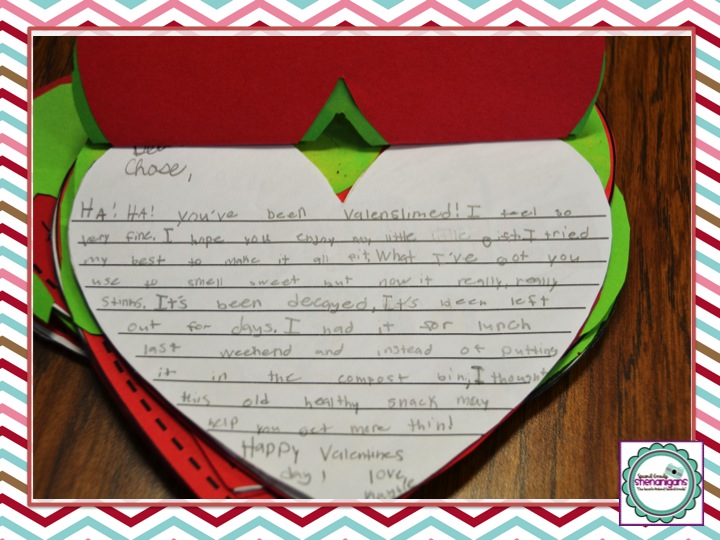 Dear
Chase,
HA! HA! you've been Valenslimed! I feel so
very fine. I hope you enjoy my little little gift. I tried
my best to make it all fit. What I've got you
use to smell sweet but now it really, really
stinks. It's been decayed, It's been left
out for days. I had it for lunch
last weekend and instead of putting
it in the compost bin, I thought
this old healthy snack may
help you get more thin!
Happy Valentines
day! love,
Second Grade
shenanigans